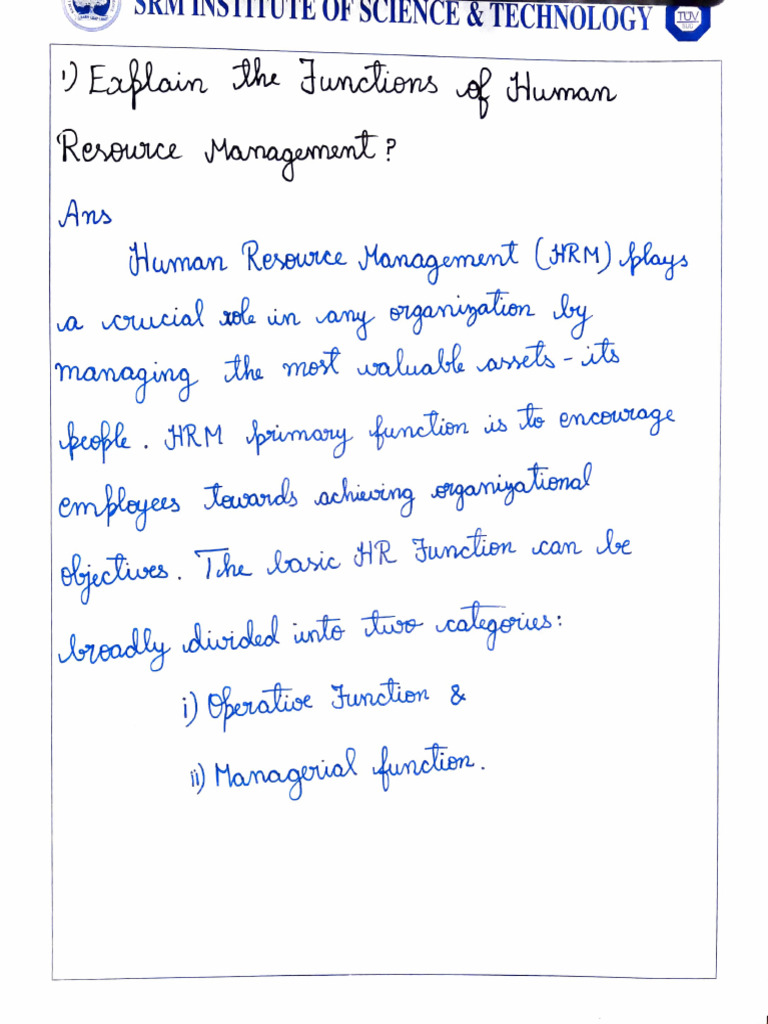 SRM INSTITUTE OF SCIENCE & TECHNOLOGY
TÜV
SUD
1) Explain the Functions of Human
Resource Management?
Ans
Human Resource Management (HRM) plays
a crucial role in any organization by
managing the most valuable assets - its
people. HRM primary function is to encourage
employees towards achieving organizational
objectives. The basic HR Function can be
broadly divided into two categories:
i) Operative Function &
ii) Managerial function.